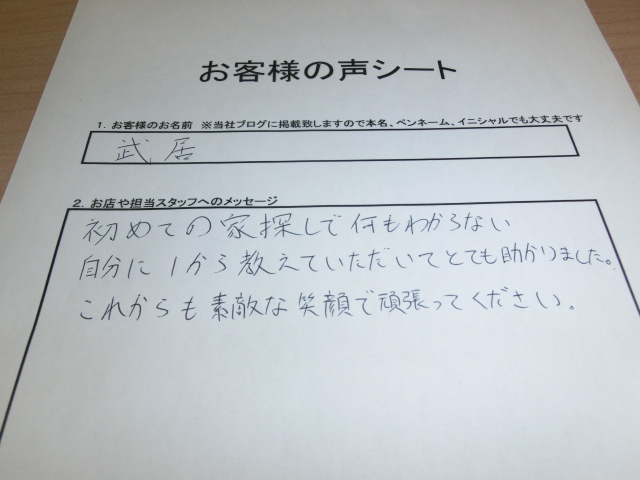 お客様の声シート
1. お客様のお名前 ※当社ブログに掲載致しますので本名、ペンネーム、イニシャルでも大丈夫です
武居
2. お店や担当スタッフへのメッセージ
初めての家探しで何もわからない
自分に1から教えていただいてとても助かりました。
これからも素敵な笑顔で頑張ってください。